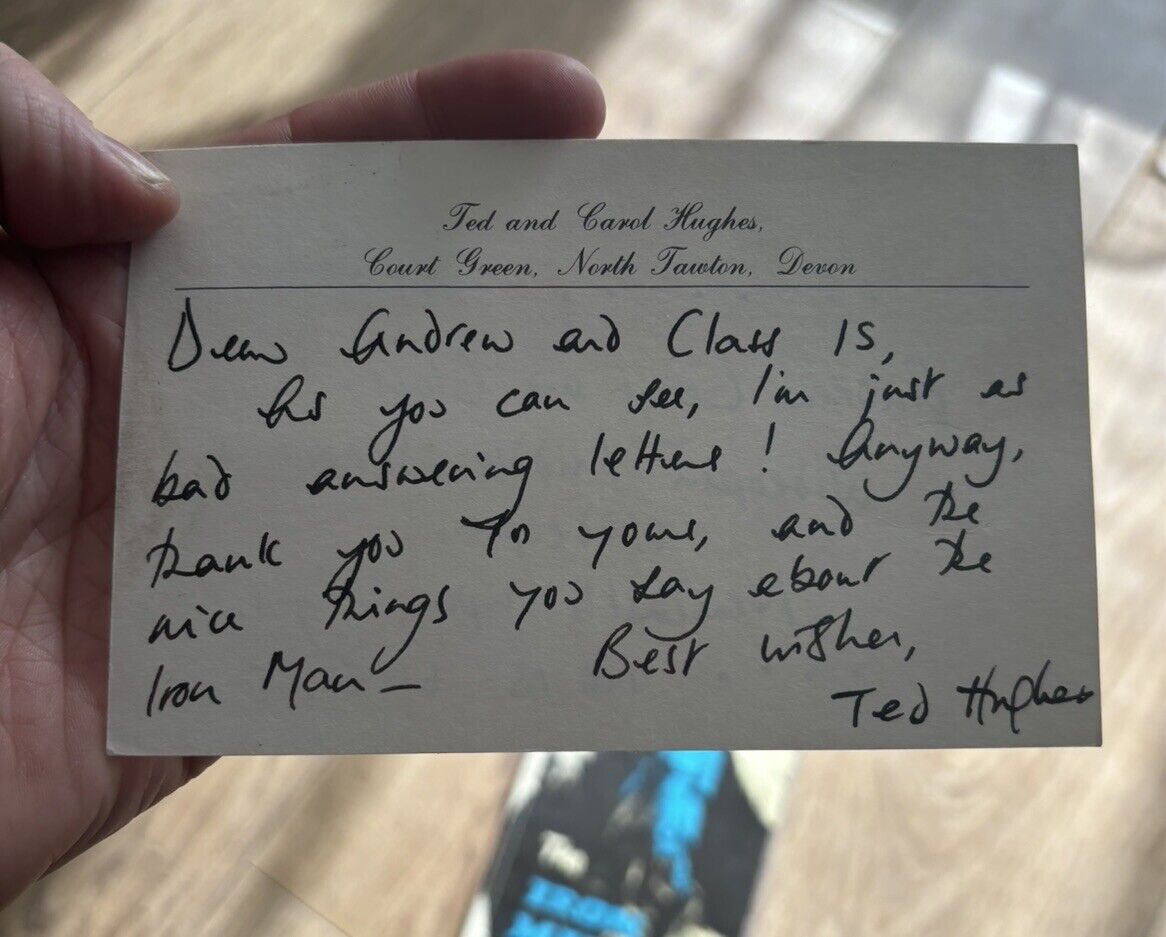 Ted and Carol Hughes,
Court Green, North Tawton, Devon
Dear Andrew and Class 1S,
As you can see, I'm just as
bad answering letters! Anyway,
thank you for yours, and the
nice things you say about the
Iron Man — Best wishes,
Ted Hughes
The
IRON